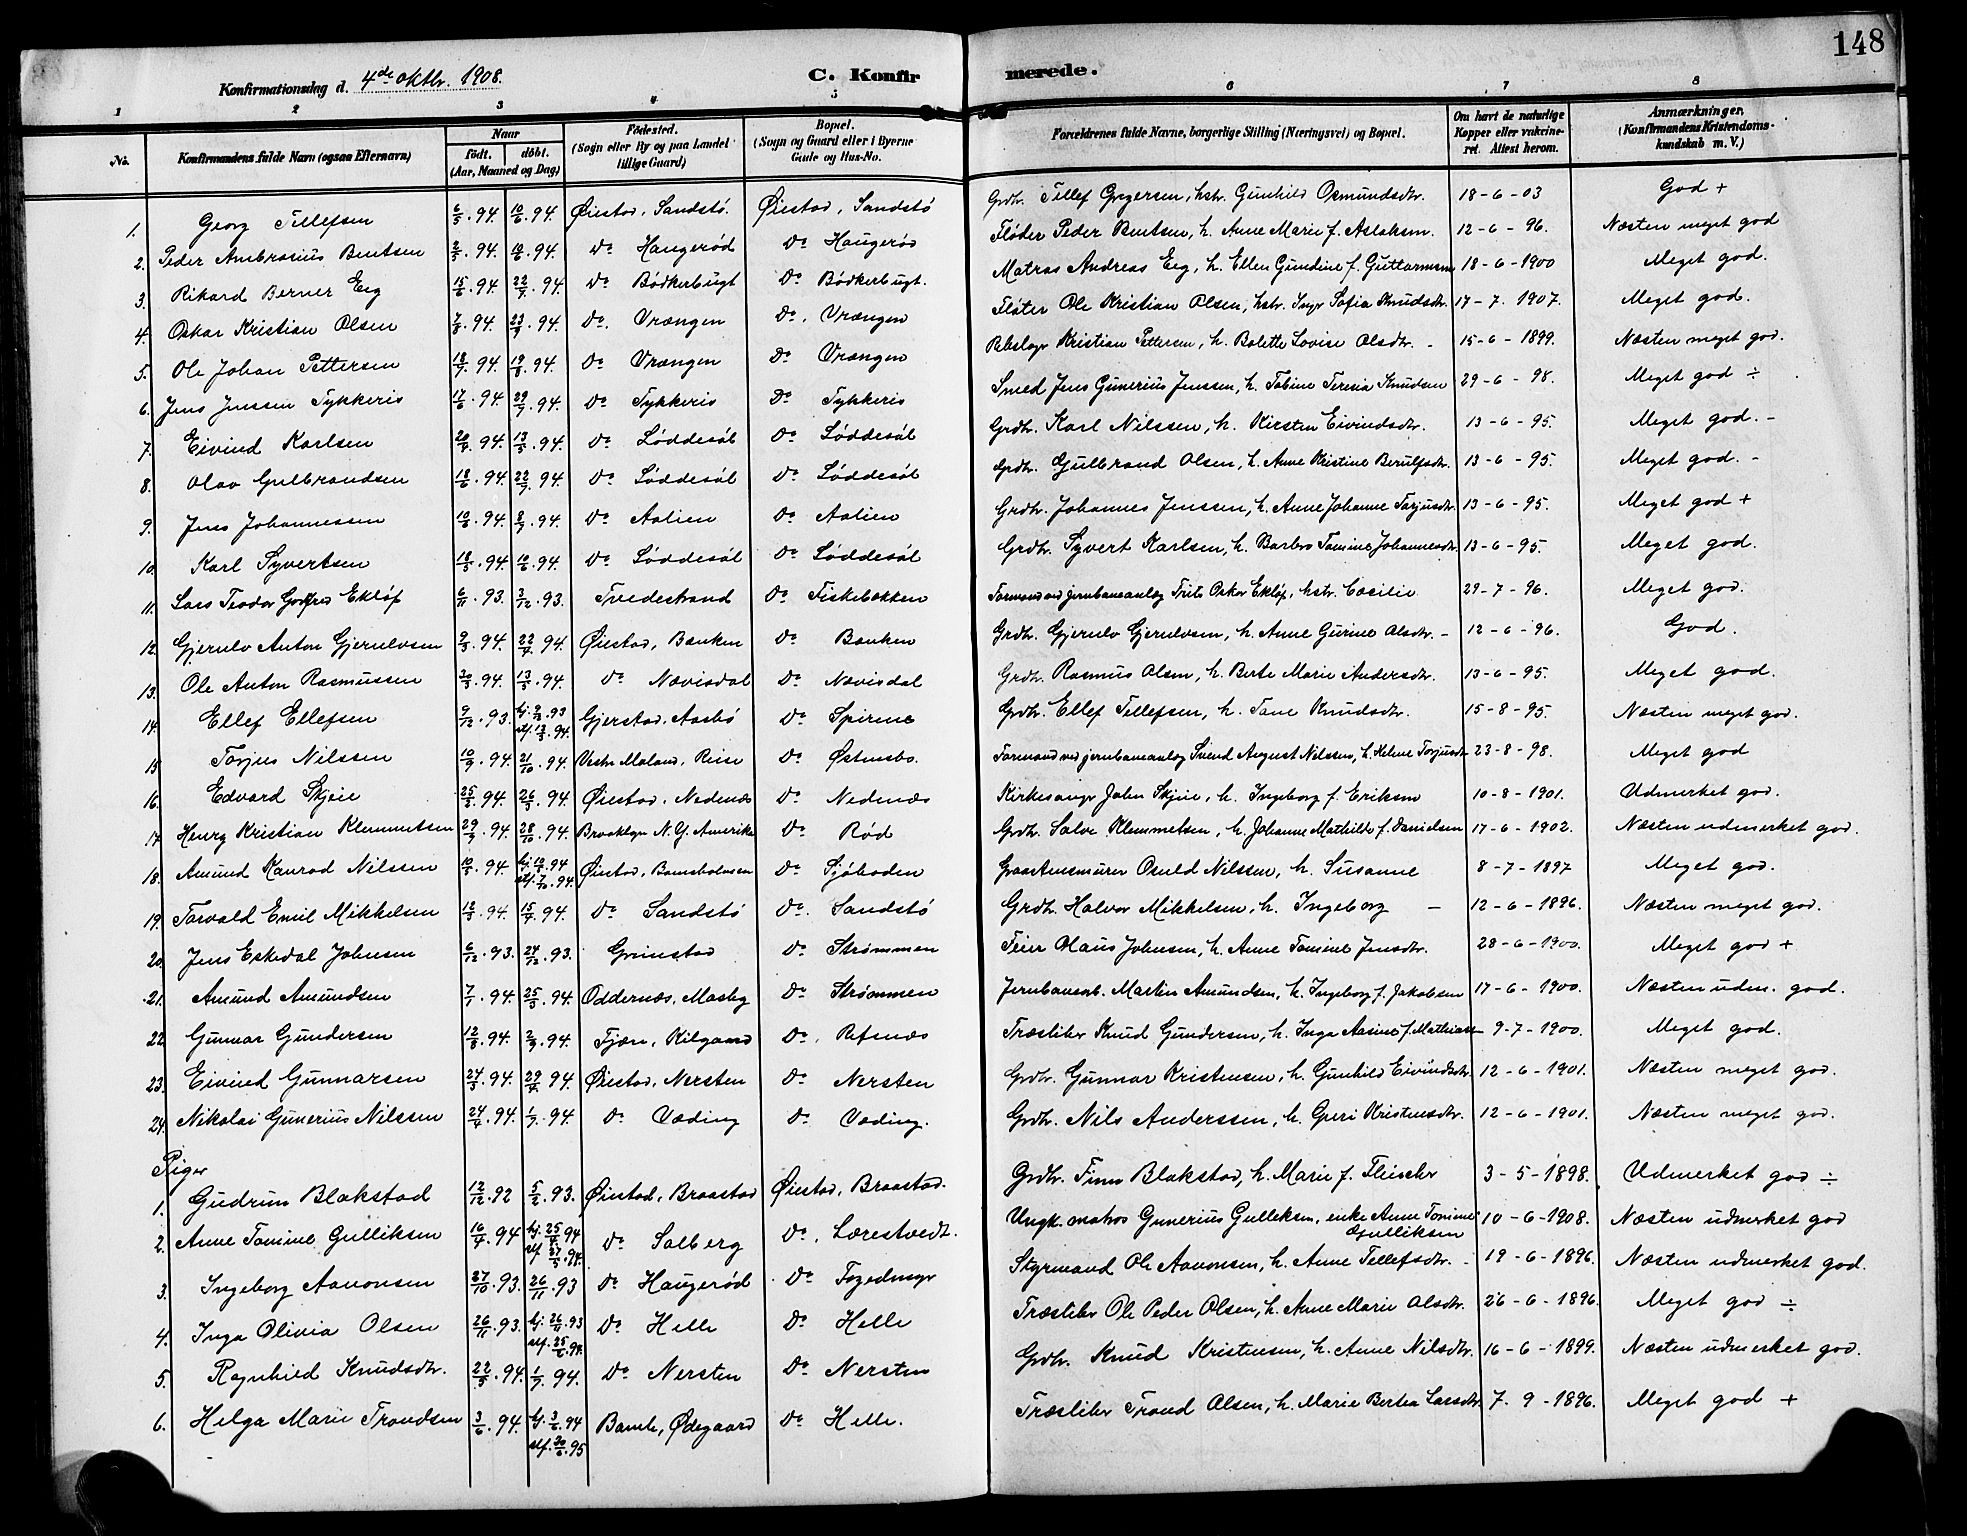 148
Konfirmationsdag d. 4de oktbr. 1908. C. Konfirmerede.
1 2 3 4 5 6 7 8
No. Konfirmandens fulde Navn (ogsaa Efternavn) Naar født. døbt. (Aar, Maaned og Dag) Fødested. (Sogn eller By og paa Landet tillige Gaard) Bopæl. (Sogn og Gaard eller i Byerne Gade og Hus-No. Forældrenes fulde Navne, borgerlige Stilling (Næringsvei) og Bopæl. Om havt de naturlige Kopper eller vakcineret. Attest herom. Anmærkninger, (Konfirmandens Kristendomskundskab m. V.)
1. Georg Tellefsen 6/5.94 10/6.94. Øiestad, Sandstø. Øiestad, Sandstø Grdbr. Tellef Gregersen, hstr. Gunhild Osmundsdtr. 18-6-03 God +
2. Peder Ambrosius Bentsen 2/5.94. 10/6.94. Do Haugerød Do Haugerød Fløder Peder Bentsen, h. Anne Marie f. Aslaksen. 12-6-96. Næsten meget god
3. Rikard Berner Eeg 15/6.94. 22/7.94. Do Bødkerbugt Do Bødkerbugt. Matros Andreas Eeg, h. Ellen Gundine f. Guttormsen 18-6-1900 Meget god.
4. Oskar Kristian Olsen 7/8.94. 23/9.94. Do. Vrængen Do. Vrængen Fløter Ole Kristian Olsen, hstr. Inger Sofia Knudsdtr. 17-7.1907. Meget god.
5. Ole Johan Pettersen 18/7.94 19/8.94. Do Vrængen Do Vrængen Rebslager Kristian Pettersen, h. Bolette Lovise Olsdtr. - 15-6-1899. Næsten meget god.
6. Jens Jenssen Tykkeris 17/6.94. 29/7.94. Do Tykkeris Do Tykkeris Smed Jens Gunerius Jenssen, h. Tobine Teresia Knudsen 29-6-98. Meget god ÷
7. Eivind Karlsen 20/4.94. 13/5.94. Do Løddesøl Do Løddesøl Grdbr. Karl Nilssen, h. Kirsten Eivindsdtr. 13-6-95. Meget god. -
8. Olav Gulbrandsen 18/6.94. 22/7.94. Do Løddesøl Do Løddesøl Grdbr. Gulbrand Olsen, h. Anne Kristine Berulfsdtr. 13-6-95. Meget god. -
9. Jens Johannessen 10/6.94. 8/7.94. Do Aalien Do Aalien Grdbr. Johannes Jenssen, h. Anne Johanne Torjusdtr. 13-6-95. Meget god +
10. Karl Syvertsen 18/5.94. 10/6.94. Do Løddesøl Do Løddesøl Grdbr. Syvert Karlsen, h. Barbro Tomine Johannesdtr. 13-6-95. Meget god.
11. Lars Teodor Gotfred Ekløf 6/11.93. 3/12.93. Tvedestrand Do Fiskebækken Formand ved jernbaneanlæg Frits Oskar Ekløf, hstr. Cæcilie 29-7-96. Meget god.
12. Gjerulv Anton Gjerulvsen 9/3.94. 22/4.94. Øiestad, Bænken Do Bænken Grdbr. Gjerulv Gjerulvsen, h. Anne Gurine Olsdtr. - 12-6-96. God.
13. Ole Anton Rasmussen 30/3.94. 13/5.94. Do Nævisdal Do Nævisdal Grdbr. Rasmus Olsen, h. Berte Marie Andersdtr. 13-6-95. Meget god.
14. Ellef Ellefsen 9/12.93. Gjerstad, Aasbø Do Spirene Grdbr. Ellef Tellefsen, h. Tane Knudsdtr. 15-8-95. Næsten meget god.
15. Torjus Nilssen 10/9.94. 21/10.94. Vestre Moland, Reise Do Østensbo. Formand ved jernbaneanlæg Svend August Nilssen, h. Helene Torjusdtr 23-8-98. Meget god
16. Edvard Skjeie 25/3.94. 26/5.94. Øiestad, Nedenæs Do Nedenæs Kirkesanger John Skjeie, h. Ingeborg f. Eriksen 10-8-1901. Udmerket god.
17. Henry Kristian Klemmetsen 29/7.94. 28/10.94. Brooklyn N.Y. Amerika Do Rød Grdbr. Salve Klemmetsen, h. Johanne Mathilde f. Danielsen 17-6-1902. Næsten udmerket god.
18. Amund Konrad Nilssen 10/5.94. Øiestad, Do Sjøboden Osuld Nilssen, h. Susanne 8-7-1897 Meget god.
19. Torvald Emil Mikkelsen 12/3.94. 15/4.94. Do Sandstø Do. Sandstø Grdbr. Halvor Mikkelsen, h. Ingeborg - 12-6-1896. Næsten meget god.
20. Jens Eskedal Johnsen 6/12.93. 24/12.93. Grimstad Do Strømmen Feier Olaus Johnsen, h. Anne Tomine Jensdtr. 28-6-1900. Meget god +
21. Amund Amundsen 7/1.94. 25/3.94. Oddernæs, Mosby Do Strømmen Jernbanearb. Martin Amundsen, h. Ingeborg f. Jakobsen 17-6-1900. Næsten udm. god.
22. Gunnar Gundersen 12/8.94. 2/9.94. Fjære, Kilgaard Do, Refsnæs Træsliber Knud Gundersen, h. Inga Aasine f. Mathiasen 9-7-1900. Meget god.
23. Eivind Gunnarsen 24/3.94. 29/4.94. Øiestad, Nersten Do Nersten Grdbr. Gunnar Kristensen, h. Gunhild Eivindsdtr. 12-6-1901. Næsten meget god.
24. Nikolai Gunerius Nilssen 24/4.94. 1/7.94. Do Væding Do Væding. Grdbr. Nils Anderssen, h. Guri Kristensdtr. 12-6-1901. Næsten meget god.
Piger
1. Gudrun Blakstad 12/12.92 5/2.93. Øiestad, Braastad Øiestad, Braastad. Grdbr. Finn Blakstad, h. Marie f. Fleischer 3-5-1898. Udmerket god ÷
2. Anne Tomine Gulliksen 16/4.94 hj. 25/4 94 stf. 27/5.94. Do Solberg Do, Lærestvedt. Ungk. matros Gunerius Gulleksen, enke Anne Tomine Gulliksen 10-6-1908. Næsten udmerket god
3. Ingeborg Aanonsen 27/10.93. 26/11.93 Do Haugerød Do Fogedmyr Styrmand Ole Aanonsen, h. Anne Tellefsdtr. - 19-6-1896. Næsten udmerket god.
4. Inga Olivia Olsen 26/11.93. hj. 26/11 93 stf. 25/6.94. Do Helle Do Helle Træsliber Ole Peder Olsen, h. Anne Marie Olsdtr. 26-6-1896. Meget god ÷
5. Ragnhild Knudsdtr. 22/5.94. 1/7.94. Do Nersten Do Nersten Grdbr. Knud Kristensen, h. Anne Nilsdtr. 16-6-1899. Næsten udmerket god.
6. Helga Marie Trondsen 3/6.94. hj. 3/6.94 stf. 30/6.95 Bamle, Ødegaard Do Helle. Træsliber Trond Olsen, h. Marie Bertea Larsdtr. 7.9-1896. Meget god +